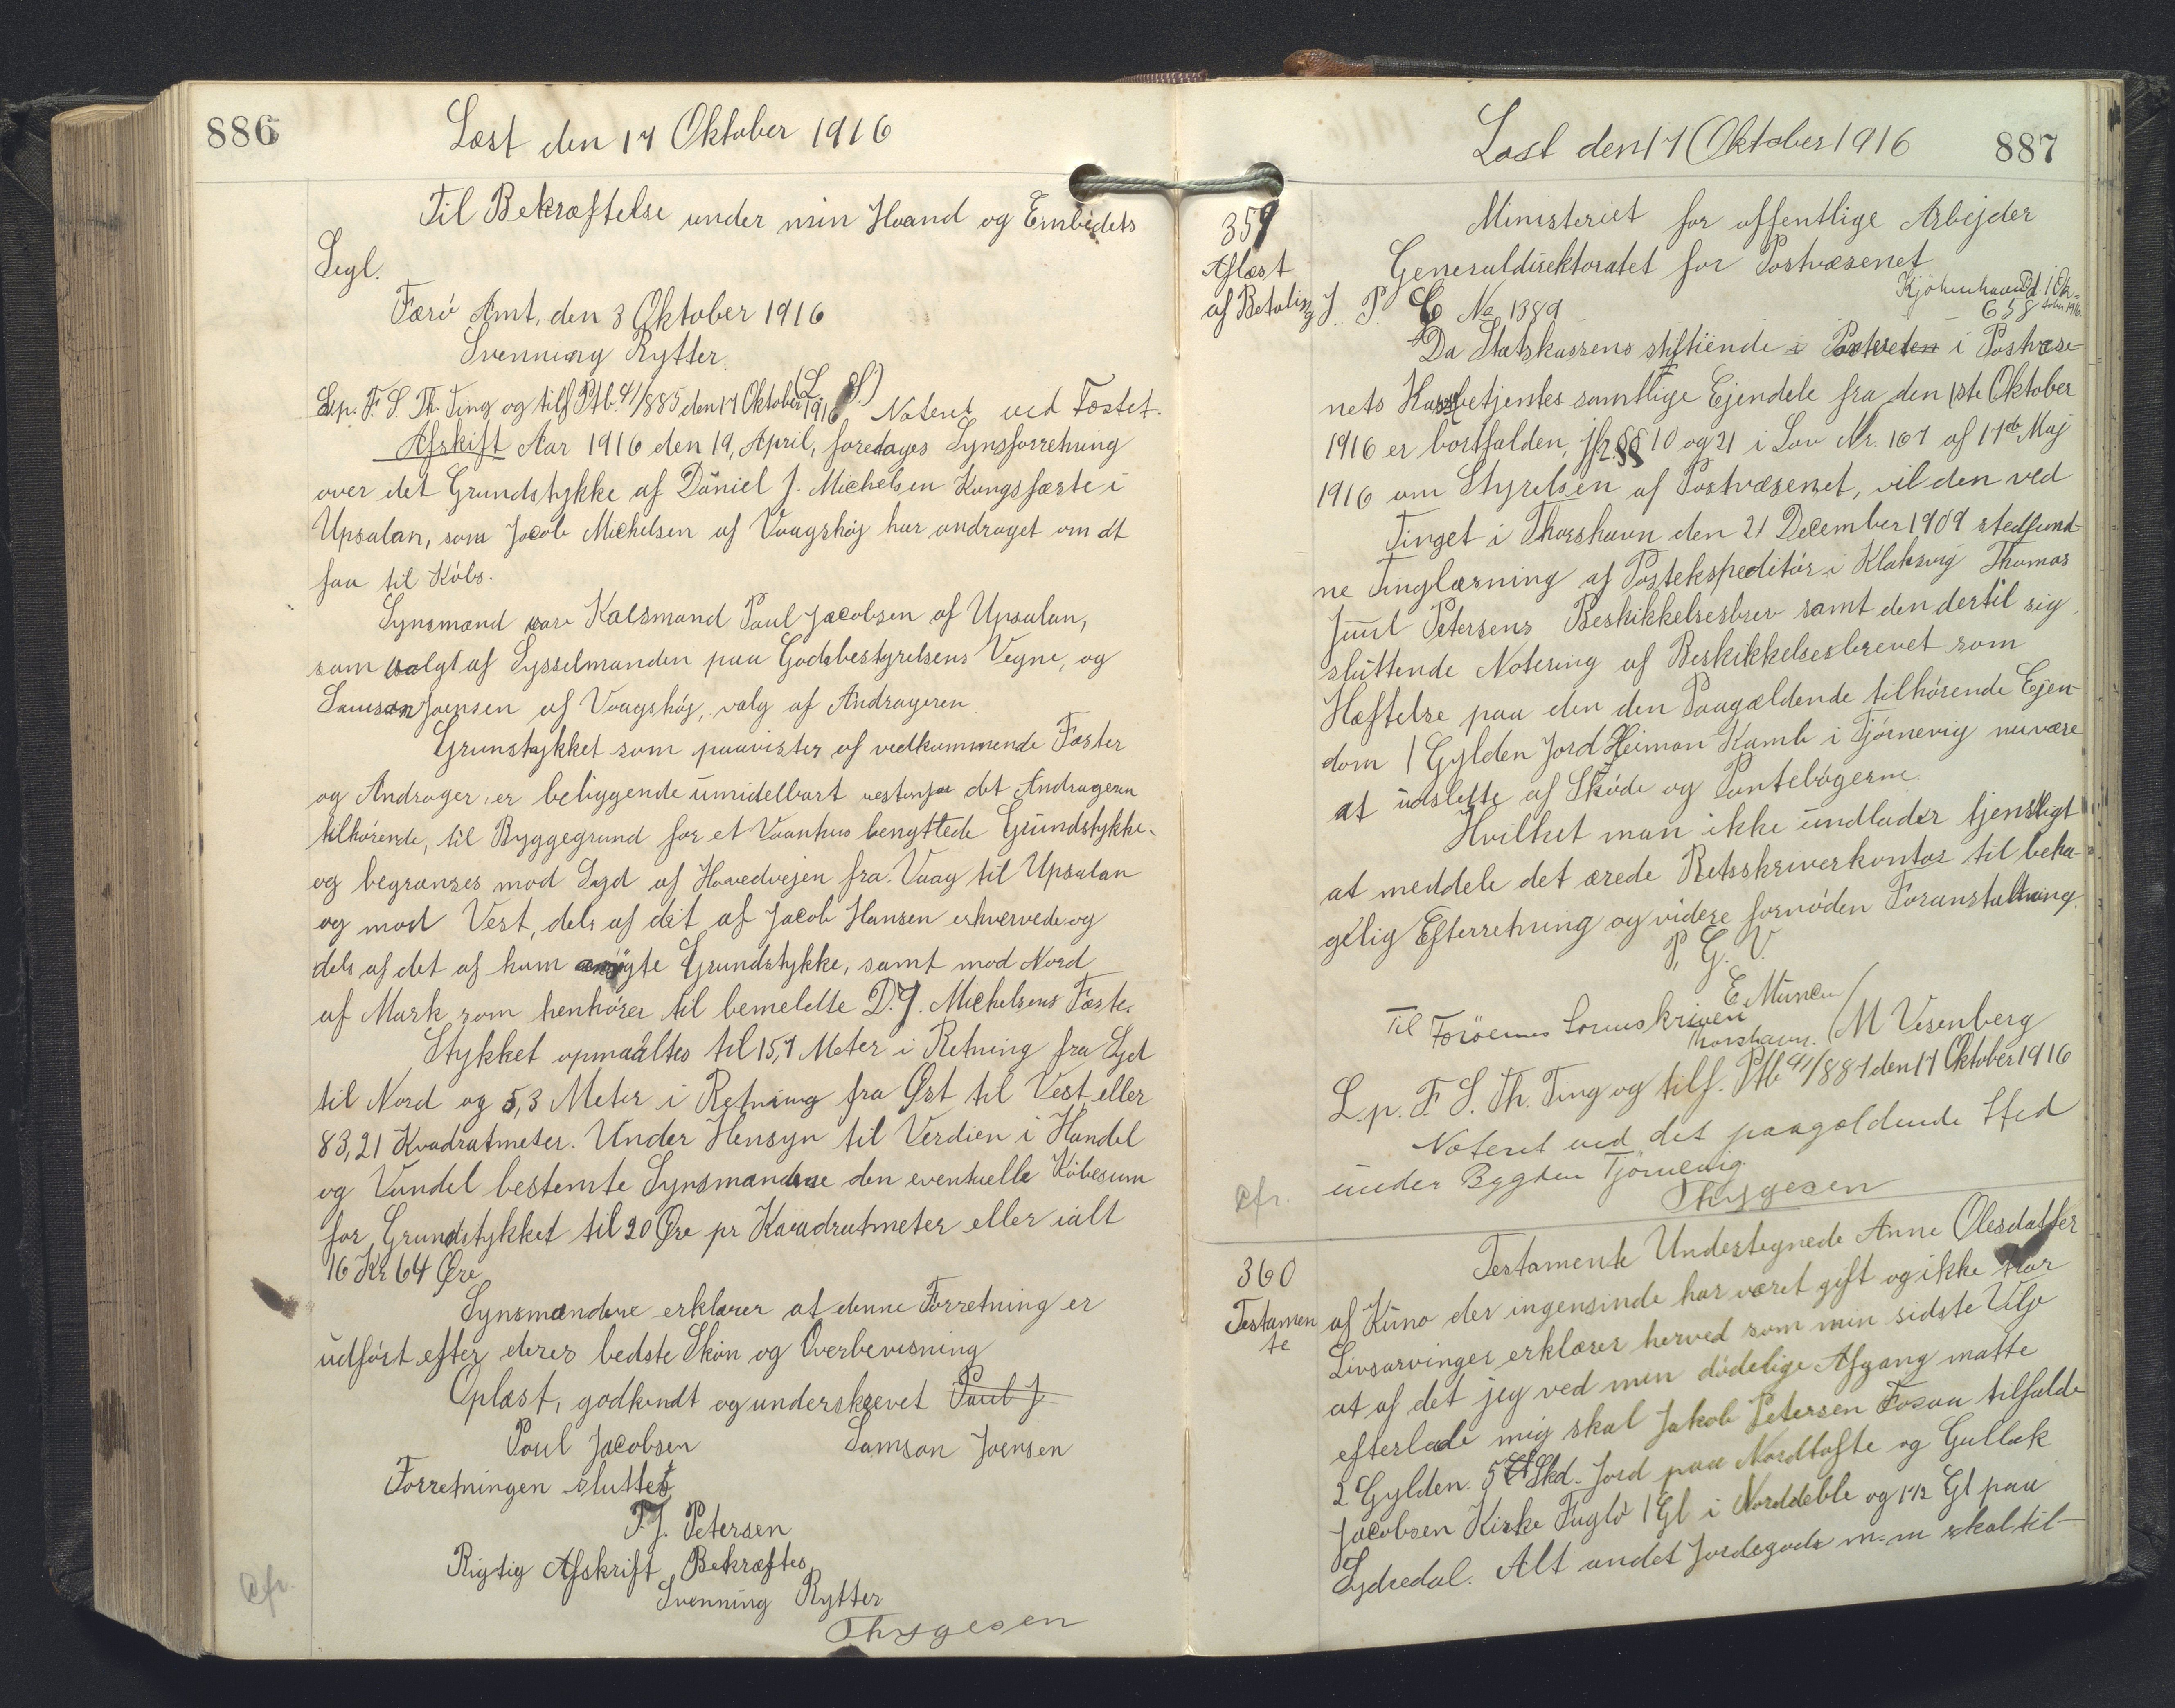 886
Læst den 17 Oktober 1916
Til Bekræftelse under min Haand og Embedets
Segl.
Færö Amt, den 3 Oktober 1916
Svenning Rytter.
(L. S.)
Lp. F. S. Th. Ting og tilf Ptb. 41/885 den 17 Oktober 1916 Noteret ved Fæstet.
Afskift Aar 1916 den 19, April, foretages Synsforretning
over det Grundstykke af Daniel J. Michelsen Kongsfæste i
Upsalan, som Jacob Michelsen af Vaagshøj har andraget om at
faa til Köbs.
Synsmænd vare Kalsmand Paul Jacobsen af Upsalan,
som valgt af Sysselmanden paa Godsbestyrelsens Vegne, og
Samson Joensen af Vaagshøj, valg af Andrageren.
Grunstykket som paavistes af vedkommende Fæster
og Andrager, er beliggende umidelbart vestenfor det Andrageren
tilhörende, til Byggegrund for et Vaanhus benyttede Grundstykke
og begrænses mod Syd af Hovedvejen fra Vaag til Upsalan
og mod Vest, dels af det af Jacob Hansen erhvervede og
dels af det af ham ansögte Grundstykke, samt mod Nord
af Mark som henhörer til bemeldte D. J. Michelsens Fæste.
Stykket opmaaltes til 15,7 Meter i Retning fra Syd
til Nord og 5,3 Meter i Retning fra Øst til Vest eller
83,21 Kvadratmeter. Under Hensyn til Verdien i Handel
og Vandel bestemte Synsmændene den eventuelle Köbesum
for Grundstykket til 20 Øre pr Kvadratmeter eller ialt
16 Kr 64 Øre
Synsmændene erklærer at denne Forretning er
udfört efter deres bedste Skön og Overbevisning
Oplæst, godkendt og underskrevet Paul J
Poul Jacobsen Samson Joensen
Forretningen sluttet
P. J. Petersen
Rigtig Afskrift Bekræftes
Svenning Rytter
Thygesen
Cfr.
Læst den 17 Oktober 1916
887
359
Aflæst
af Betaling
Ministeriet for offentlige Arbejder
Generaldirektoratet for Postvæsenet
Kjöbenhavn d. 1 Ok-
tober 1916.
J. P. C No 1389 658
Da Statskassens stiftiende i Posteeten i Postvæse-
nets Kassebetjentes samtlige Ejendele fra den 1ste Oktober
1916 er bortfalden, jfr. §§ 10 og 21 i Lov Nr. 167 af 17de Maj
1916 om Styrelsen af Postvæsenet, vil den ved
Tinget i Thorshavn den 21 December 1909 stedfund-
ne Tinglæsning af Postekspeditör i Klaksvig Thomas
Juul Petersens Beskikkelsesbrev samt den dertil sig
sluttende Notering af Beskikkelsesbrevet som
Hæftelse paa den den Paagældende tilhörende Ejen-
dom 1 Gylden Jord Heiman Kamb i Tjörnevig nu være
at udslette af Sköde og Pantebögerne.
Hvilket man ikke undlader tjenstligt
at meddele det ærede Retsskriverkontor til beha-
gelig Efterretning og videre fornöden Foranstaltning.
P. G. V.
E Muncu/
Til Færöernes Sorenskriveri
Thorshavn. / M Vesenberg
L. p. F S. Th. Ting og tilf. Ptb 41/887 den 17 Oktober 1916
Noteret ved det paagældende Sted
under Bygden Tjörnevig
Thygesen
Cfr.
360
Testamen
te
Testamente Undertegnede Anne Olesdatter
af Kuno der ingensinde har været gift og ikke har
Livsarvinger erklærer herved som min sidste Vilje
at af det jeg ved min dödelige Afgang måtte
efterlade mig skal Jakob Petersen Fosaa tilfalde
2 Gylden 5 Skd. Jord paa Nordtofte og Gullak
Jacobsen Kirke Fuglö 1 Gl i Norddeble og 1 1/2 Gl paa
Sydredal. Alt andet Jordegods m. m skal til-